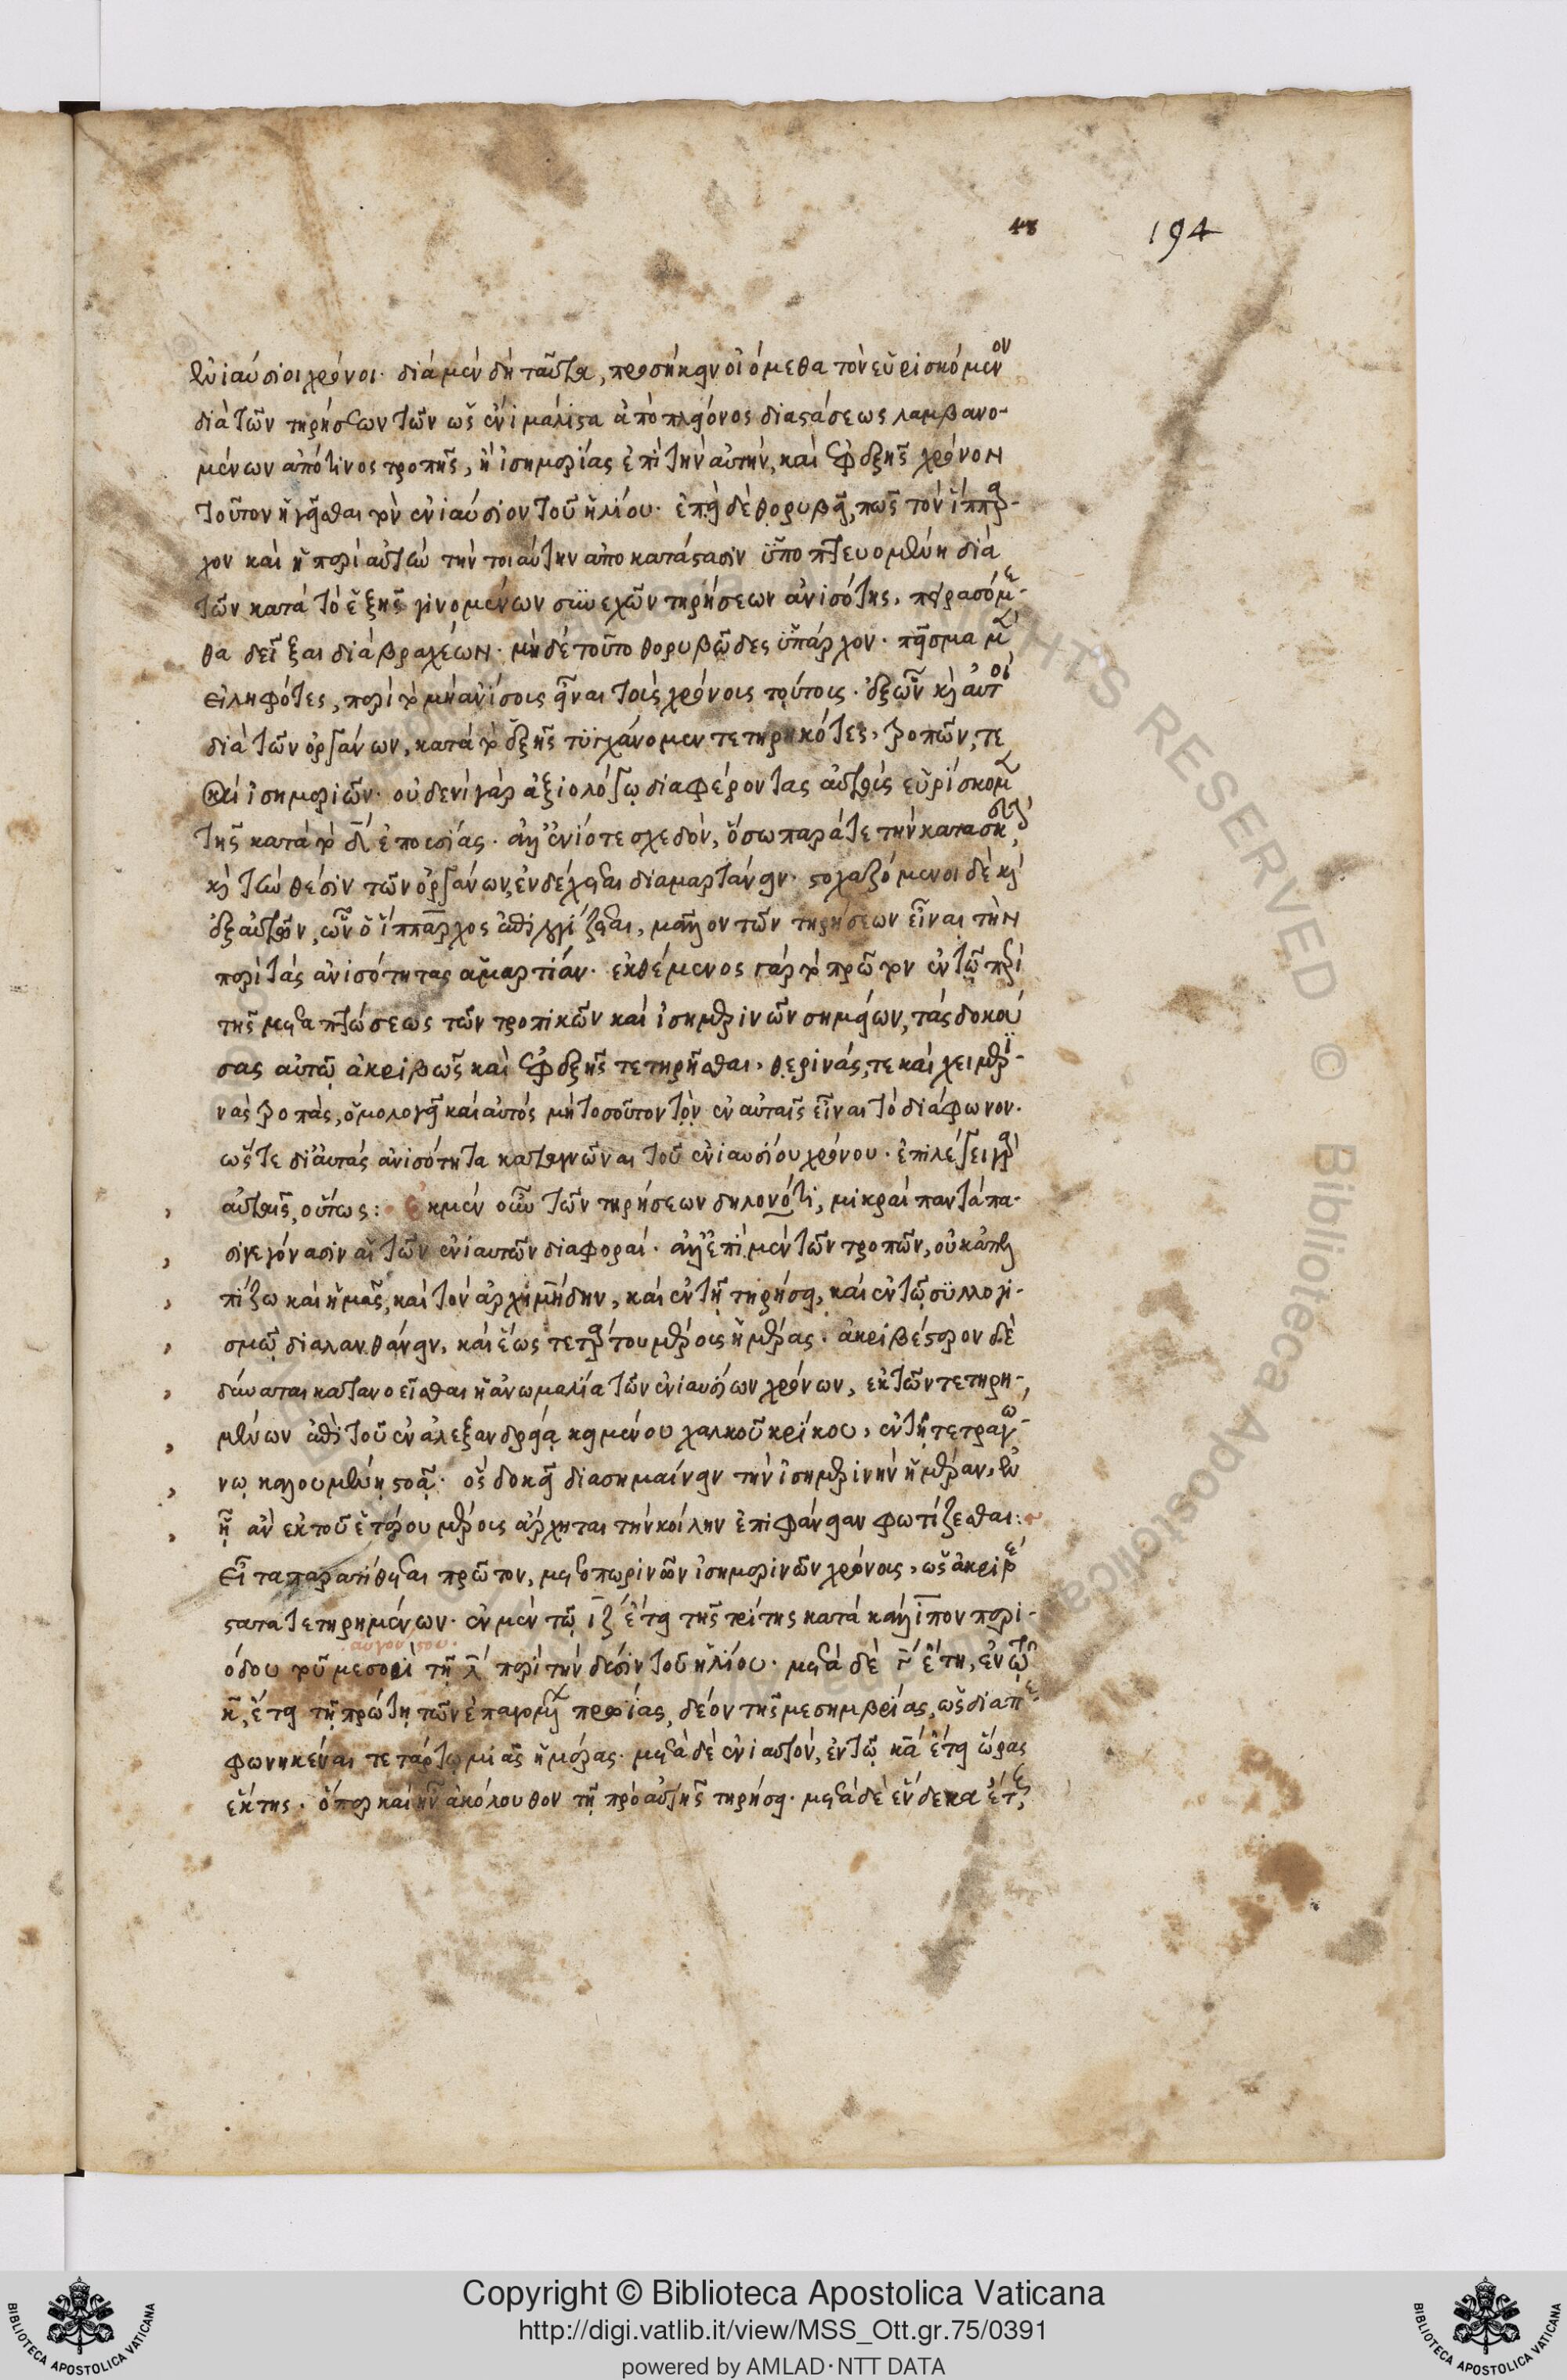 48 194
ἐνιαύσιοι χρόνοι· διὰ μὲν δὴ ταῦτα, προσήκειν οἰόμεθα τὸν εὑρισκόμενον
διὰ τῶν τηρήσεων τῶν ὡς ἔνι μάλιστα ἀπὸ πλείονος διαστάσεως λαμβανο-
μένων ἀπό τινος τροπῆς, ἢ ἰσημερίας ἐπὶ τὴν αὐτὴν, καὶ ἐφεξῆς χρόνον
τοῦτον ἡγεῖσθαι τὸν ἐνιαύσιον τοῦ ἡλίου· ἐπεὶ δὲ θορυβεῖ, πως τὸν ἵππαρ-
χον καὶ ἡ περὶ αὐτὴν τὴν τοιαύτην ἀποκατάστασιν ὑποπτευομένη διὰ
τῶν κατὰ τὸ ἑξῆς γινομένων συνεχῶν τηρήσεων ἀνισότης, πειρασόμε-
θα δεῖξαι διὰ βραχέων· μηδὲ τοῦτο θορυβῶδες ὑπάρχον· πεῖσμα μὲν
εἰληφότες, περὶ τὸ μὴ ἀνίσους εἶναι τοὺς χρόνους τούτους· ἐξ ὧν καὶ αὐτοὶ
διὰ τῶν ὀργάνων, κατὰ τὸ ἑξῆς τυγχάνομεν τετηρηκότες, τροπῶν, τε
καὶ ἰσημεριῶν· οὐδενὶ γὰρ ἀξιολόγῳ διαφέροντας αὐτοὺς εὑρίσκομεν
τῆς κατὰ τὸ δ΄ ἐπουσίας· ἀλλ' ἐνίοτε σχεδὸν, ὅσω παρά τε τὴν κατασκευὴν,
καὶ τὴν θέσιν τῶν ὀργάνων, ἐνδέχεται διαμαρτάνειν· στοχαζόμενοι δὲ καὶ
ἐξ αὐτῶν, ὧν ὁ ἵππαρχος ἐπιλογίζεται, μᾶλλον τῶν τηρήσεων εἶναι τὴν
περὶ τὰς ἀνισότητας ἁμαρτίαν· ἐκθέμενος γὰρ τὸ πρῶτον ἐν τῷ περὶ
τῆς μεταπτώσεως τῶν τροπικῶν καὶ ἰσημερινῶν σημείων, τὰς δοκού
σας αὐτῷ ἀκριβῶς καὶ ἐφεξῆς τετηρῆσθαι, θερινάς, τε καὶ χειμερι-
νὰς τροπὰς, ὁμολογεῖ καὶ αὐτὸς μὴ τοσοῦτον τὸν ἐν αὐταῖς εἶναι τὸ διάφωνον·
ὥστε δι' αὐτὰς ἀνισότητα καταγνῶναι τοῦ ἐνιαυσίου χρόνου· ἐπιλέγει γὰρ
αὐταῖς, οὕτως: ἐκ μὲν οὖν τῶν τηρήσεων δηλονότι, μικραὶ παντάπα-
σι γεγόνασιν αἱ τῶν ἐνιαυτῶν διαφοραί· ἀλλ' ἐπὶ μὲν τῶν τροπῶν, οὐκ ἀπελ
πίζω καὶ ἡμᾶς, καὶ τὸν ἀρχιμήδην, καὶ ἐν τῇ τηρήσει, καὶ ἐν τῷ συλλογι-
σμῷ διαλανθάνειν, καὶ ἕως τετάρτου μέρους ἡμέρας· ἀκριβέστερον δὲ
δύναται κατανοεῖσθαι ἡ ἀνωμαλία τῶν ἐνιαυσίων χρόνων, ἐκ τῶν τετηρη-
μένων ἐπὶ τοῦ ἐν ἀλεξανδρείᾳ κειμένου χαλκοῦ κρίκου, ἐν τῇ τετραγώ-
νῳ καλουμένῃ στοᾷ· ὃς δοκεῖ διασημαίνειν τὴν ἰσημερινὴν ἡμέραν, ἐν
ᾗ ἂν ἐκ τοῦ ἑτέρου μέρους ἄρχηται τὴν κοίλην ἐπιφάνειαν φωτίζεσθαι:
Εἶτα παρατίθεται πρῶτον, μετοπωρινῶν ἰσημερινῶν χρόνους, ὡς ἀκριβέ
στατα τετηρημένων· ἐν μὲν τῷ ιζ΄ ἔτει τῆς τρίτης κατὰ κάλλιπον περι-
αὐγούστου·
όδου τοῦ μεσορὶ τῇ λ΄ περὶ τὴν δύσιν τοῦ ἡλίου· μετὰ δὲ γ΄ ἔτη, ἐν τῷ
κ, ἔτει τῇ πρώτῃ τῶν ἐπαγομένων πρωΐας, δέον τῆς μεσημβρίας, ὡς διαπε-
φωνηκέναι τετάρτῳ μιᾶς ἡμέρας· μετὰ δὲ ἐνιαυτόν, ἐν τῷ κα΄ ἔτει ὥρας
ἕκτης· ὅπερ καὶ ἦν ἀκόλουθον τῇ πρὸ αὐτῆς τηρήσει· μετὰ δὲ ἕνδεκα ἔτη
RIGHTS RESERVED © Biblioteca Apostolica Vaticana
BIBLIOTECA APOSTOLICA VATICANA
Copyright © Biblioteca Apostolica Vaticana
http://digi.vatlib.it/view/MSS_Ott.gr.75/0391
powered by AMLAD·NTT DATA
BIBLIOTECA APOSTOLICA VATICANA